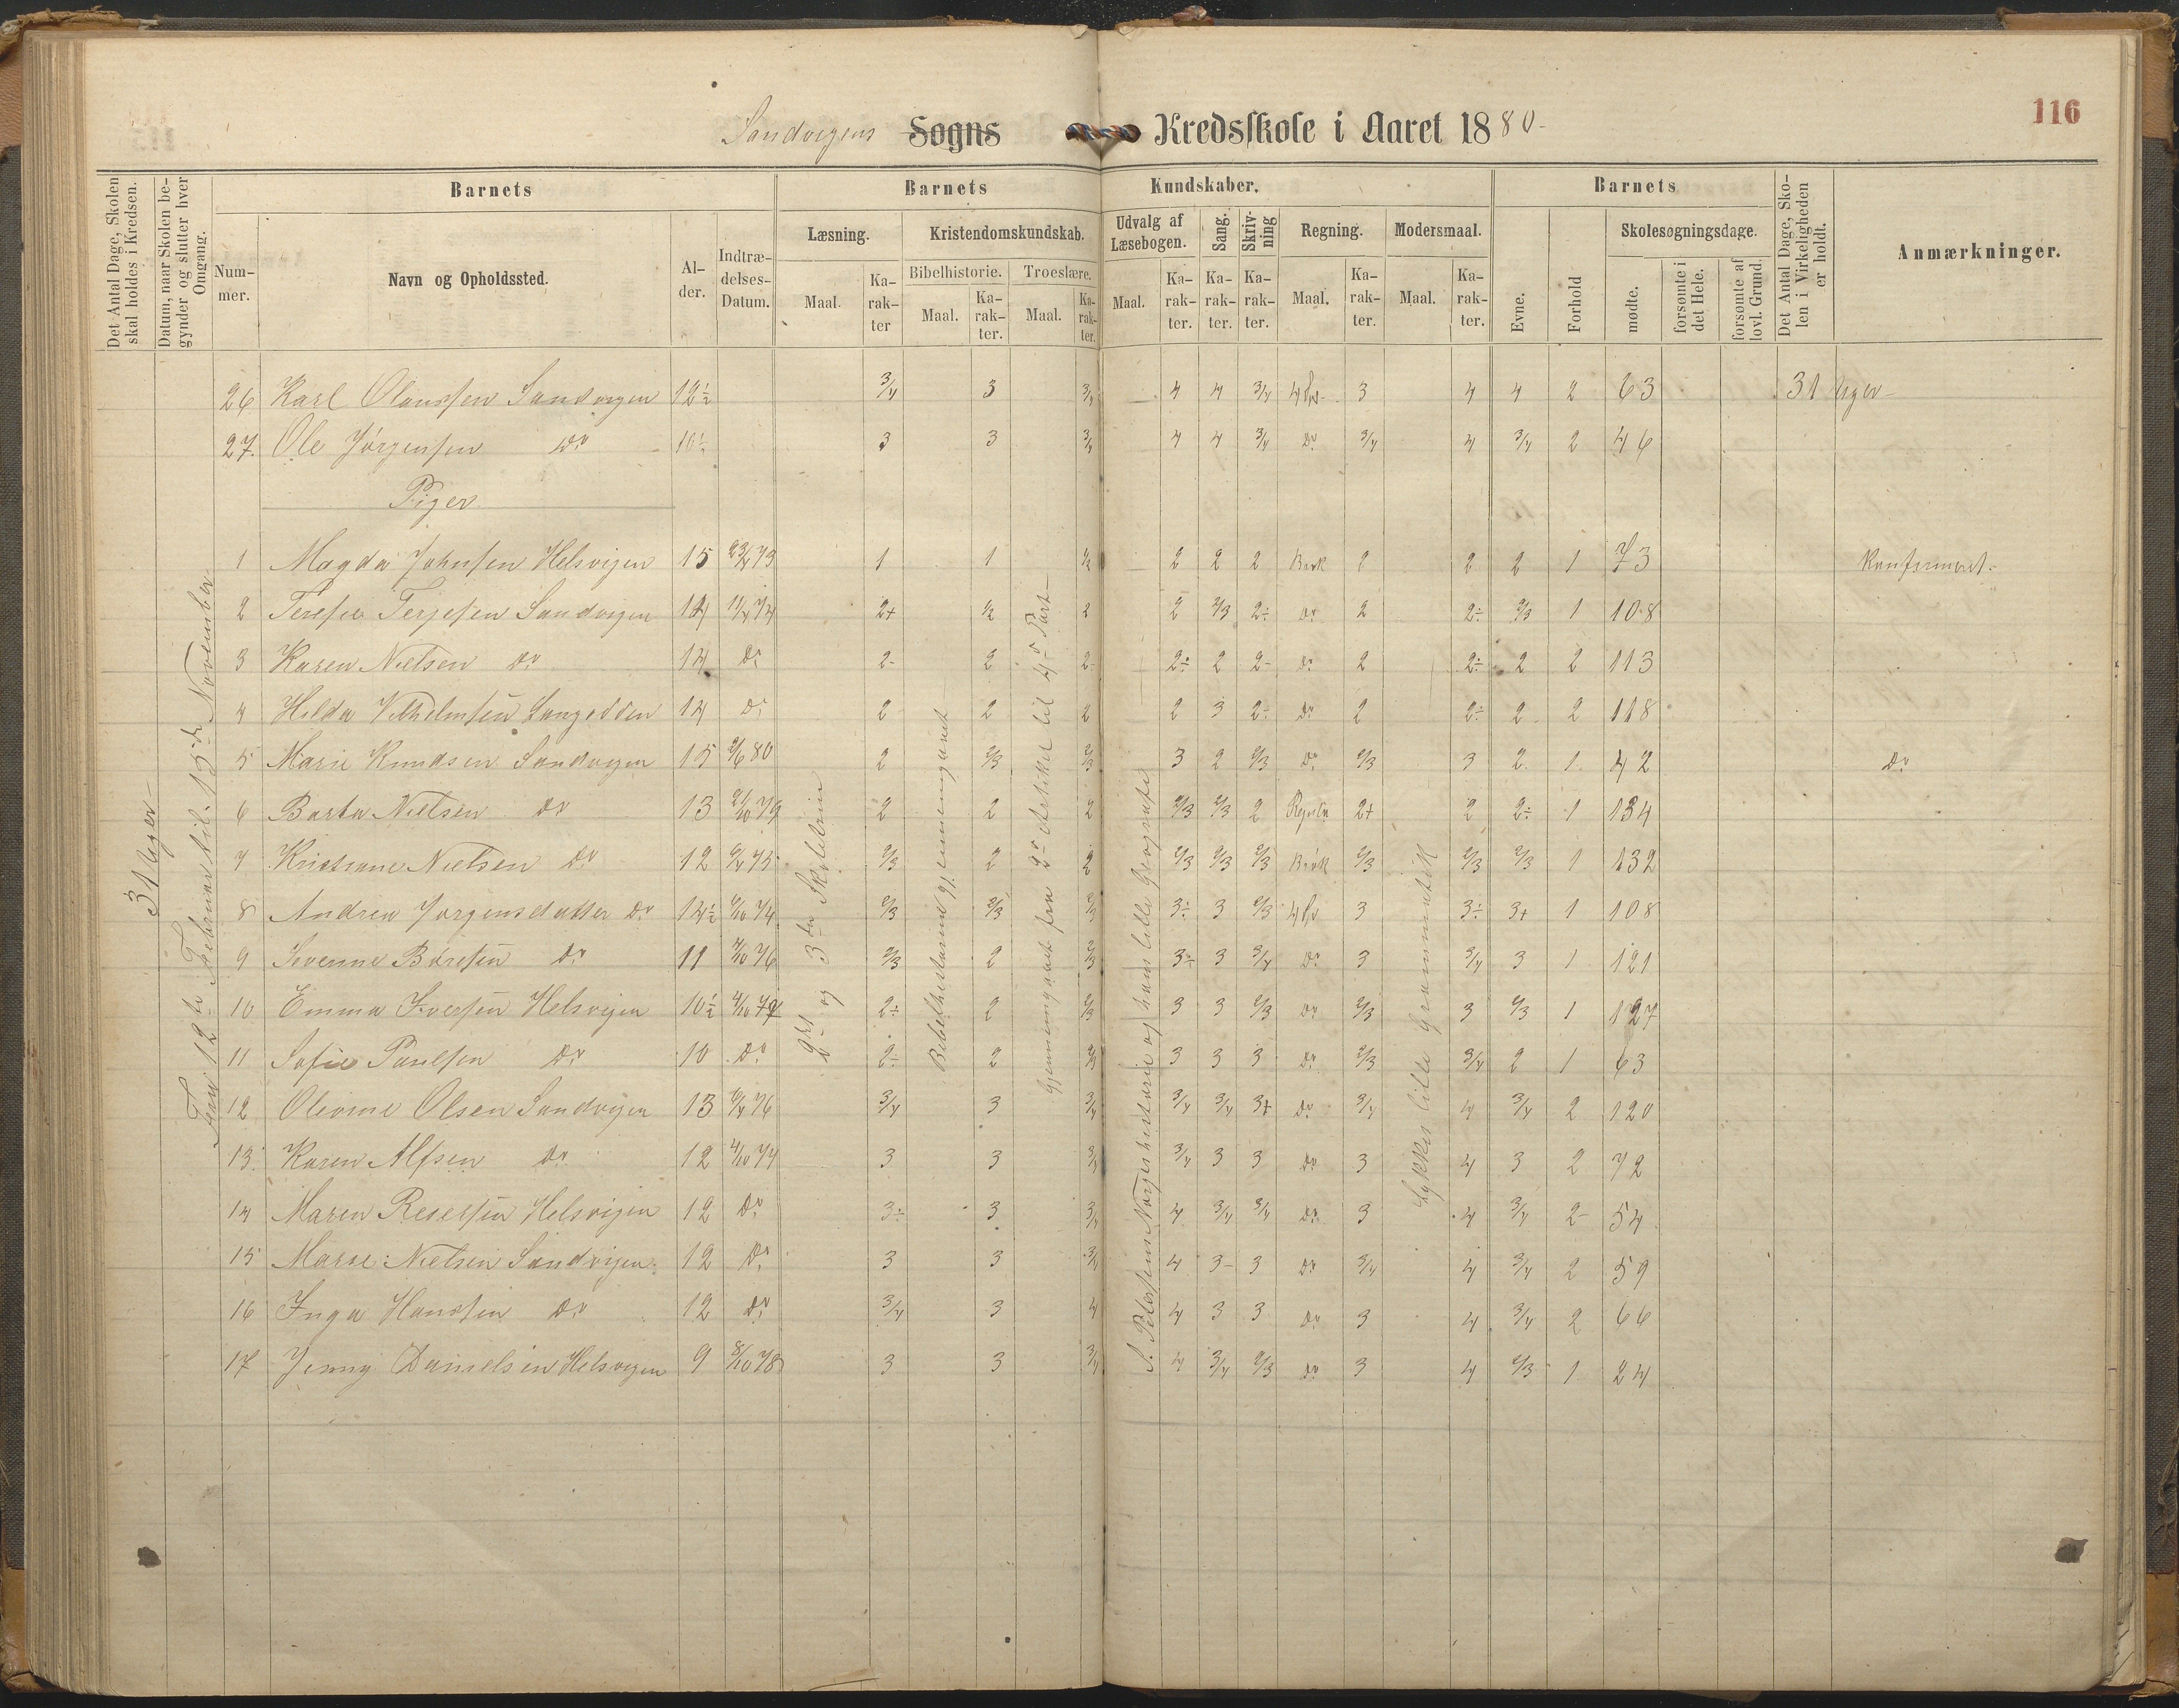 116
Sandvigens Sogns Kredsskole i Aaret 1880-
Det Antal Dage, Skolen skal holdes i Kredsen.
Datum, naar Skolen begynder og slutter hver Omgang.
Barnets
Nummer.
Navn og Opholdssted.
Alder.
Indtrædelses-Datum.
Barnets Kundskaber.
Læsning.
Maal.
Karakter
Kristendomskundskab.
Bibelhistorie.
Maal.
Karakter.
Troeslære.
Maal.
Karakter.
Udvalg af Læsebogen.
Maal.
Karakter.
Sang.
Karakter.
Skrivning
Karakter.
Regning.
Maal.
Karakter.
Modersmaal.
Maal.
Karakter.
Barnets
Evne.
Forhold
Skolesøgningsdage.
mødte.
forsømte i det Hele.
forsømte af lovl. Grund.
Det Antal Dage, Skolen i Virkeligheden er holdt.
Anmærkninger.
31 Uger-
Fra 12te Februar til 15de November-
2den og 3die Skoletrin
Bibelhistorien gjennemgaaet
gjennemgaaet fra 2den Artikel til 4de Part-
S. Petersens Norgeshistorie og hans lille Geografi
Løkkes lille Grammatik
26 Karl Olaussen Sandvigen 12½ 3/4 3 3/4 4 4 3/4 3 4 4 2 63 31 Uger-
27. Ole Jørgensen Do 10½ 3 3 3/4 4 4 3/4 Do 3/4 4 3/4 2 46
Piger
1 Magda Johnsen Helsvigen 15 73 1 1 1/2 2 2 2 Brøk 2 2 2 1 73 Konfirmeret.
2 Terese Terjesen Sandvigen 14 74 2+ 1/2 2 2 2/3 2÷ Do 2 2÷ 2/3 1 108
3 Karen Nielsen Do 14 Do 2- 2 2- 2÷ 2 2- Do 2 2÷ 2 2 113
4 Hilda Vilhelmsen Langodden 14 Do 2 2 2 2 3 2÷ Do 2 2÷ 2 2 118
5 Marie Knudsen Sandvigen 15 80 2 2/3 2/3 3 2 2/3 Do 2/3 3 2 1 42 Do
6 Barta Nielsen Do 13 79 2 2 2 2/3 2/3 2 2+ 2 2÷ 1 134
7 Kristiane Nielsen Do 12 75 2/3 2 2 2/3 2/3 2/3 Brøk 2/3 2/3 2/3 1 132
8 Andrea Jørgensdatter Do 12½ 74 2/3 2/3 2/3 3÷ 3 2/3 3 3÷ 3+ 1 108
9 Severine Børesen Do 11 4/10 76 2/3 2 2/3 3÷ 3 3/4 Do 3 3/4 3 1 121
10 Emma Iversen Helsvigen 10½ 4/10 2÷ 2 2/3 3 3 2/3 Do 2/3 3 2/3 1 127
11 Sofie Paulsen Do 10 Do 2÷ 2 2/3 3 3 3 Do 2/3 3/4 2 1 63
12 Olevine Olsen Sandvigen 13 76 3/4 3 3/4 3/4 3/4 3+ Do 3/4 4 3/4 2 120
13. Karen Alfsen Do 12 4/10 77 3 3 3/4 3/4 3 3 Do 3 4 3 2 72
14 Maren Reiersen Helsvigen 12 Do 3÷ 3 3/4 4 3/4 3/4 Do 3 4 3/4 2- 54
15 Marie Nielsen Sandvigen 12 Do 3 3 3/4 4 3- 3 Do 3/4 4 3/4 2 59
16 Inga Hansen Do 12 Do 3/4 3 4 4 3 3 Do 3 4 3/4 2 66
17 Jenny Danielsen Helsvigen 9 8/10 78 3 3 3/4 4 3/4 2/3 Do 3 4 2/3 1 24